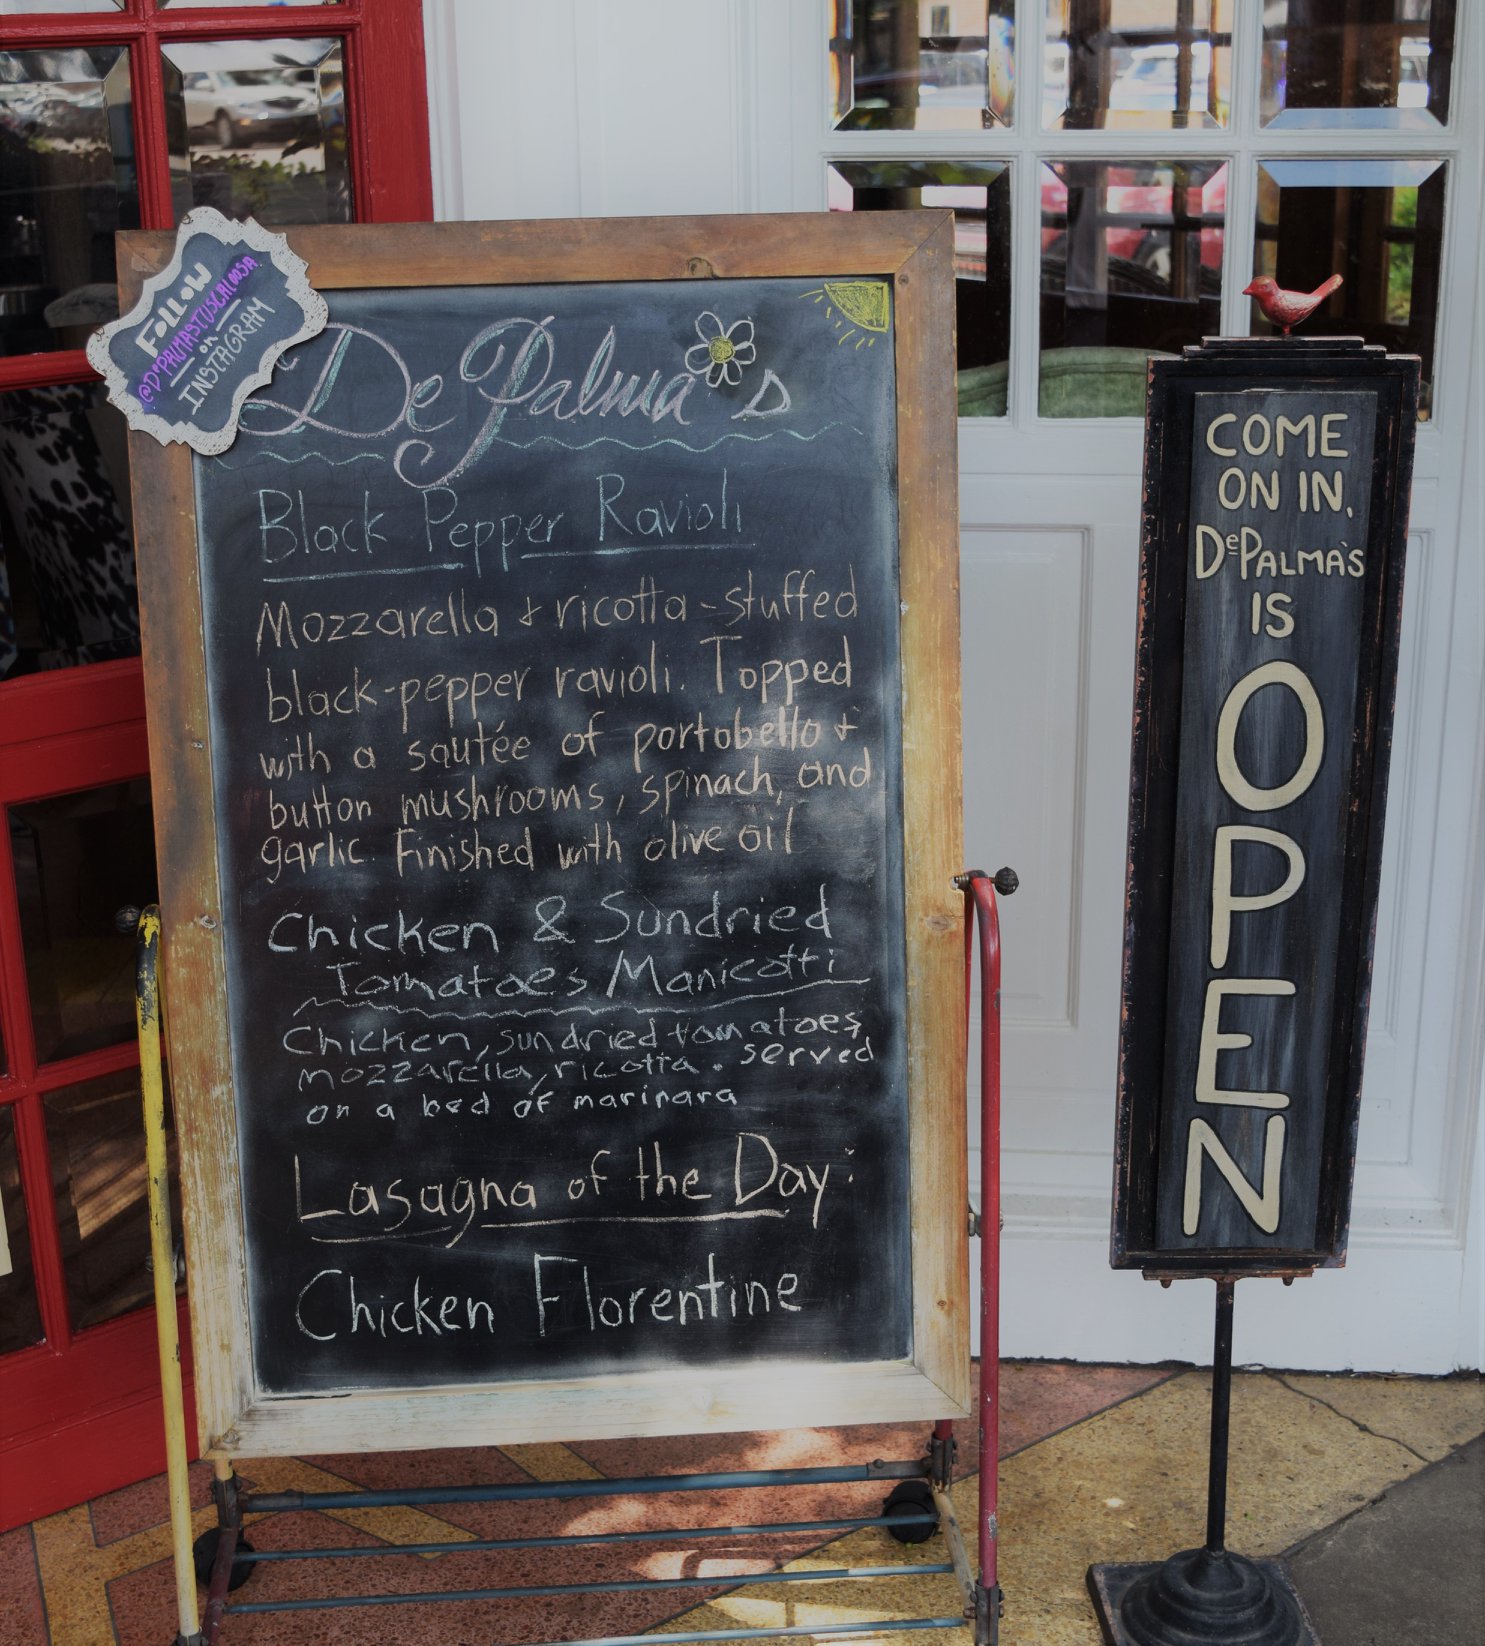 FOLLOW
@DePALMASTUSCALOOSA
on
INSTAGRAM
DePalma's
Black Pepper Ravioli
Mozzarella + ricotta-stuffed
black-pepper ravioli. Topped
with a sautée of portobello +
button mushrooms, spinach, and
garlic. Finished with olive oil
Chicken & Sundried
Tomatoes Manicotti
Chicken, sundried tomatoes,
mozzarella, ricotta. served
on a bed of marinara
Lasagna of the Day:
Chicken Florentine
COME
ON IN,
DePALMA'S
IS
OPEN